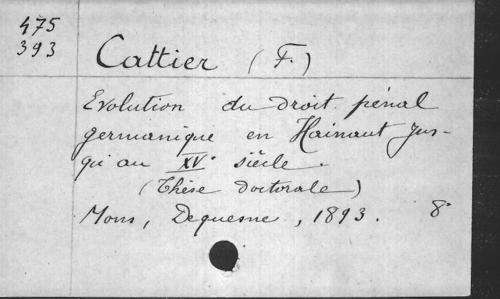 475
393
Cattier (F.)
Evolution du droit pénal
germanique en Hainaut jus-
qu'au XVe siècle.
(Thèse doctorale)
Mons, Dequesne, 1893. 8°